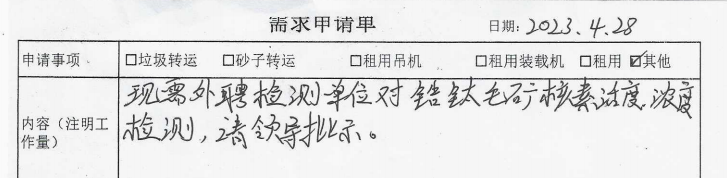 需求申请单 日期: 2023.4.28
申请事项 □垃圾转运 □砂子转运 □租用吊机 □租用装载机 □租用 ☑其他
现需外聘检测单位对锆钛毛矿核素活度、浓度
内容（注明工作量）
检测，请领导批示。